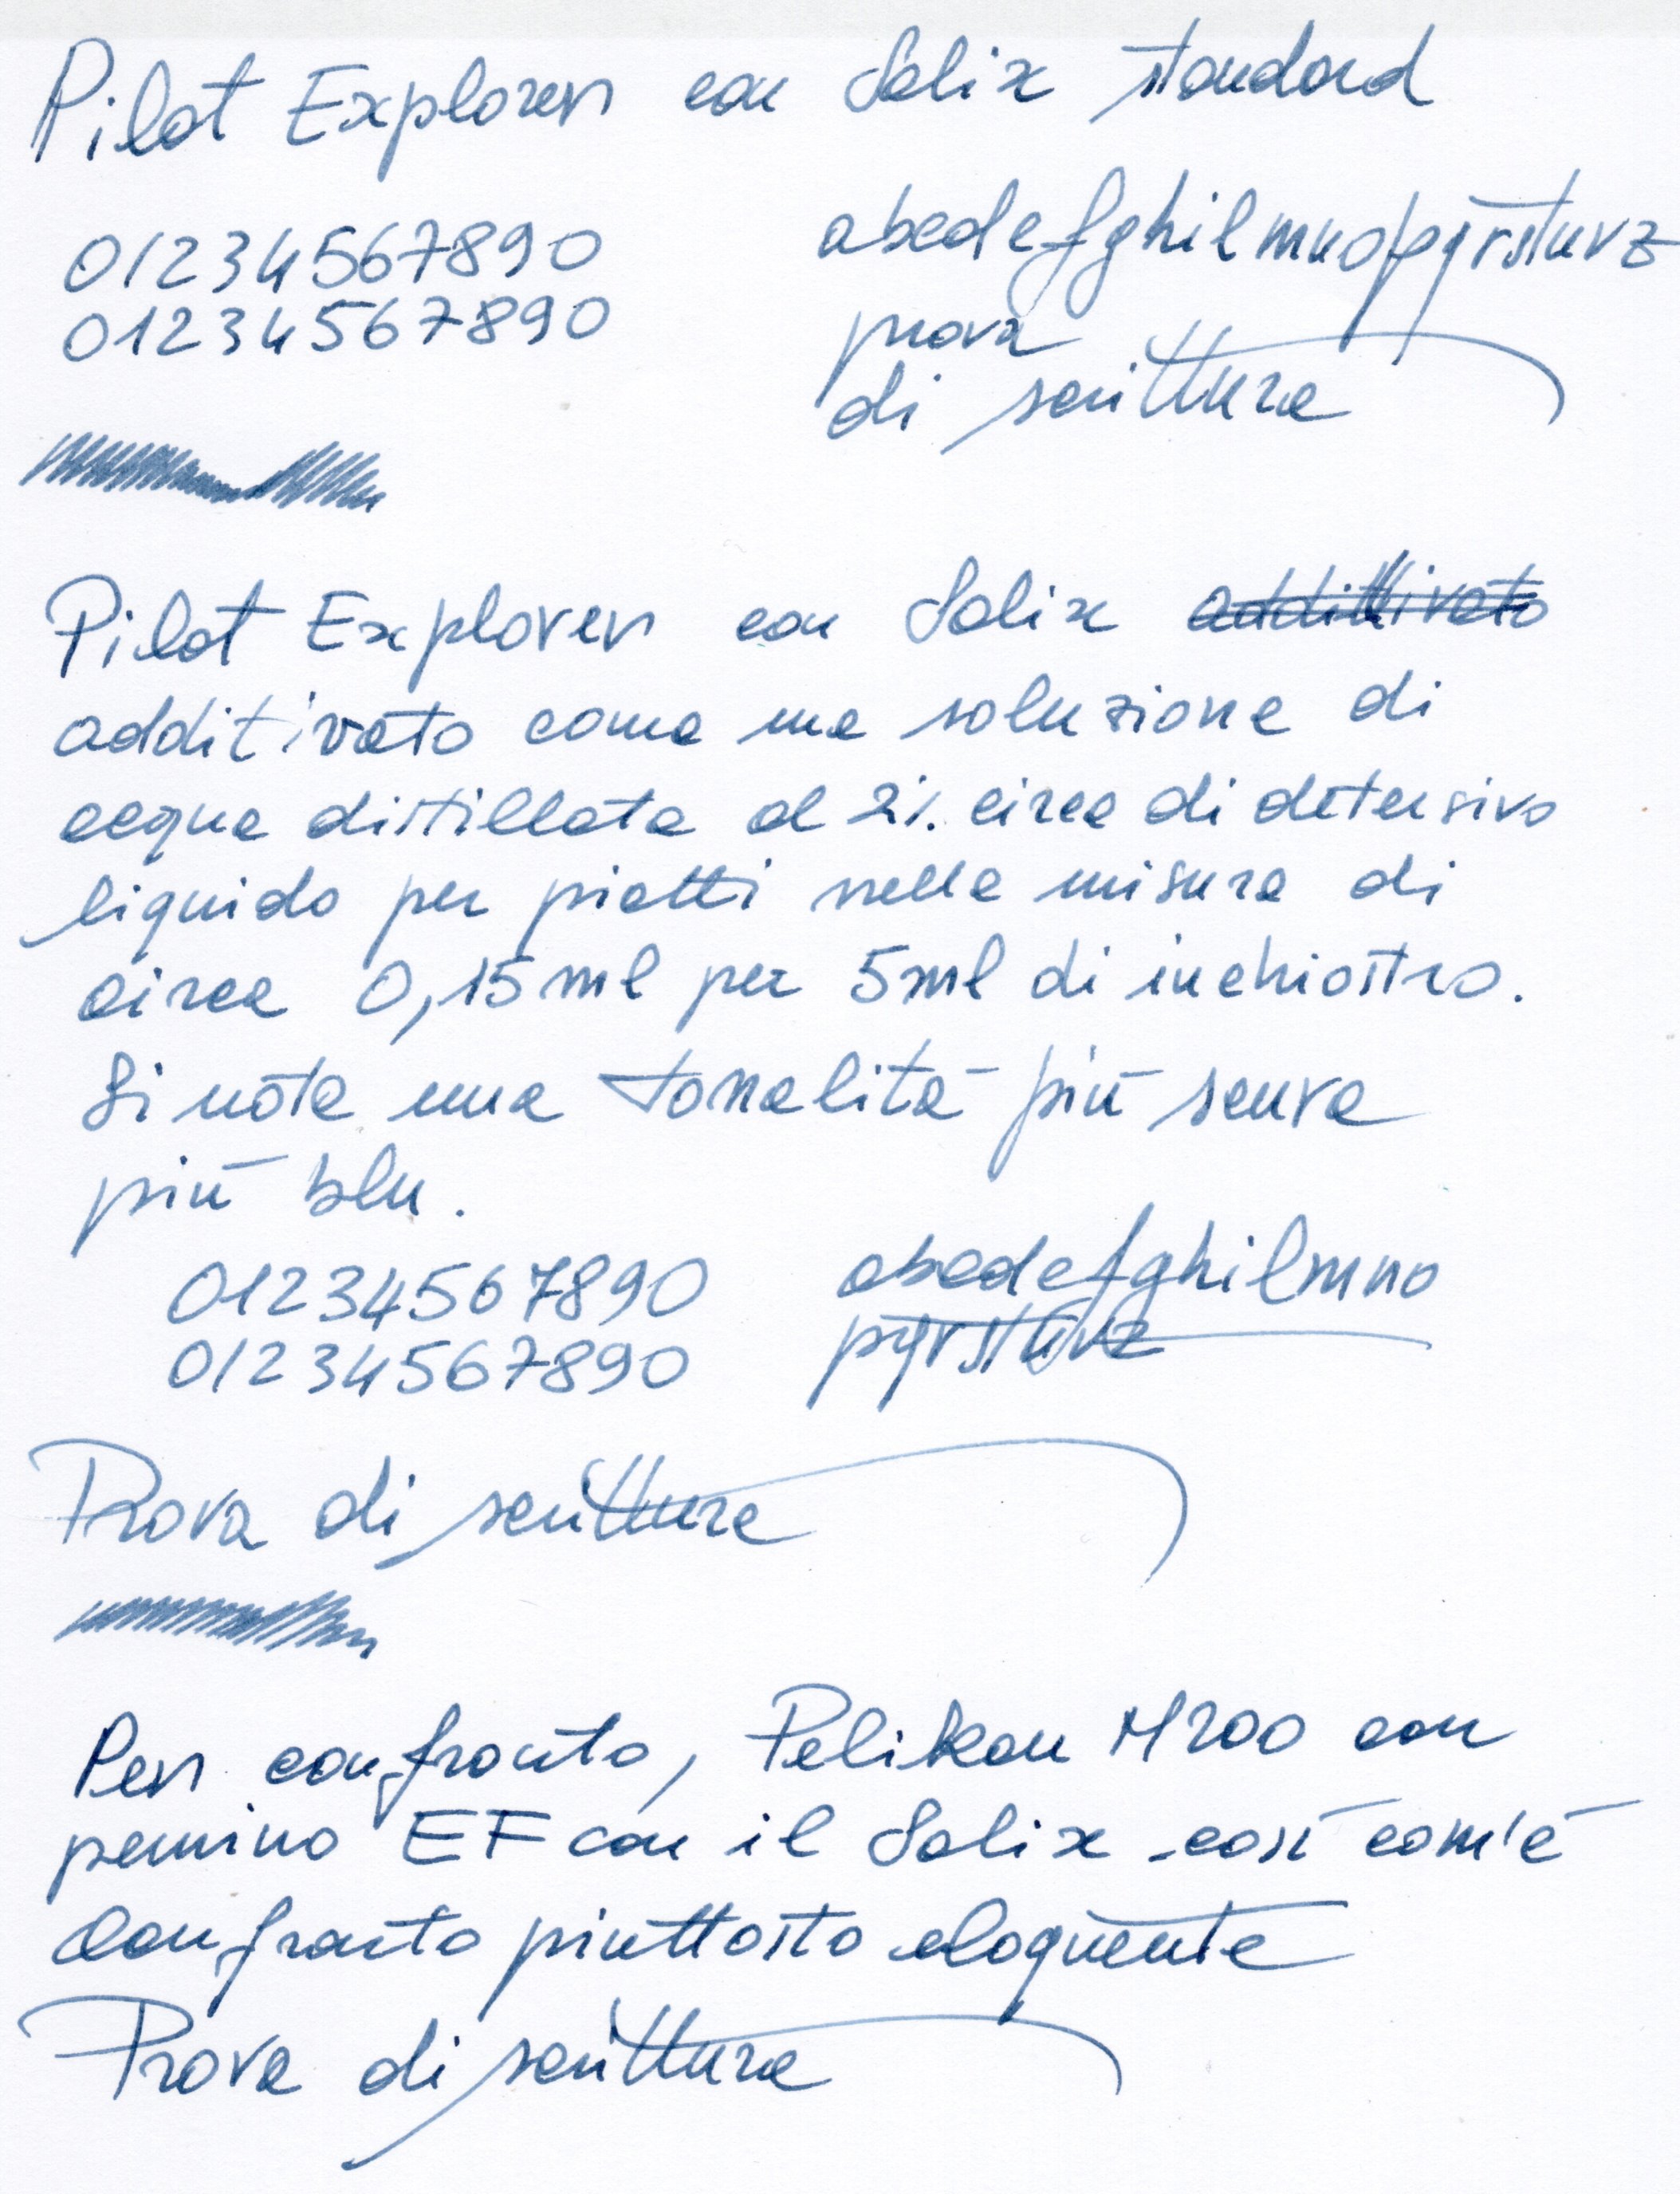 Pilot Explorer con Salix standard
01234567890
01234567890
abcdefghilmnopqrstuvz
prova
di scrittura
Pilot Explorer con Salix addittivato
additivato come una soluzione di
acqua distillata al 2% circa di detersivo
liquido per piatti nella misura di
circa 0,15ml per 5ml di inchiostro.
Si nota una tonalità più scura
più blu.
01234567890
01234567890
abcdefghilmno
pqrstuvz
Prova di scrittura
Per confronto, Pelikan M200 con
pennino EF con il Salix così com'è
Confronto piuttosto eloquente
Prova di scrittura